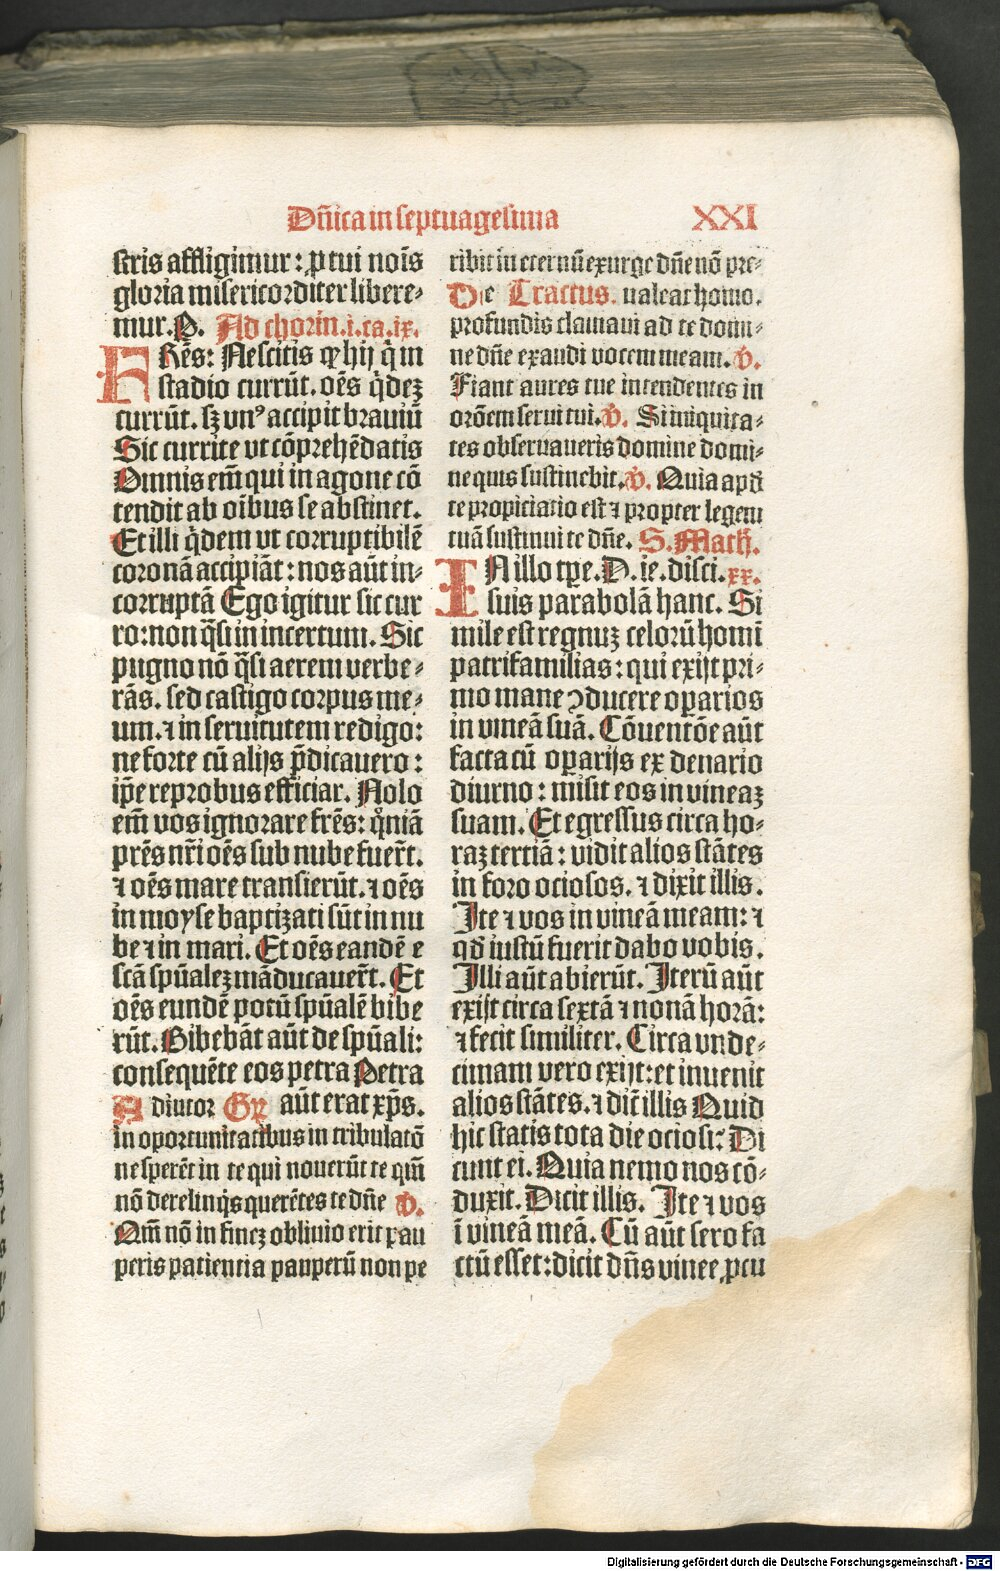 Dñica in septuagesima XXI
stris affligimur: ꝓ tui nois̄
gloria misericorditer libere⸗
mur. P. Ad chorin̄. i. ca. ix.
FRēs: Nescitis ꝙ hij q̇ in
stadio currūt. oēs q̇dez
currūt. sz vnꝰ accipit brauiū
Sic currite vt cōprehēdatis
Omnis em̄ qui in agone cō
tendit ab oibus se abstinet.
Et illi q̇dem vt corruptibilē
coronā accipiāt: nos aūt in⸗
corruptā Ego igitur sic cur
ro: non q̄si in incertum. Sic
pugno nō q̄si aerem verbe⸗
rās. sed castigo corpus me⸗
um. ⁊ in seruitutem redigo:
ne forte cū alijs p̄dicauero:
ip̄e reprobus efficiar. Nolo
em̄ vos ignorare frēs: qm̄iā
prēs nr̄i oēs sub nube fuer̄t.
⁊ oēs mare transierūt. ⁊ oēs
in moyse baptizati sūt in nu
be ⁊ in mari. Et oēs eandē e
scā spūalez māducauer̄t. Et
oēs eundē potū spūalē bibe
rūt. Bibebāt aūt de spūali:
consequēte eos petra Petra
Adiutor Gr̄ aūt erat xp̄s.
in oportunitatibus in tribulatō
ne sperēt in te qui nouerūt te qm̄
nō derelinq̇s querētes te dn̄e ℣.
Qm̄ nō in finez obliuio erit pau
peris patientia pauperū non pe
ribit in eternū exurge dn̄e nō pre⸗
De Tractus. ualeat homo.
profundis clamaui ad te domi⸗
ne dn̄e exaudi vocem meam. ℣.
Fiant aures tue intendentes in
orōem serui tui. ℣. Si iniquita⸗
tes obseruaueris domine domi⸗
ne quis sustinebit. ℣. Quia apd̄
te propiciatio est ⁊ propter legem
tuā sustinui te dn̄e. S. Math̄.
IN illo tp̄e. D. ie. disci. xx.
suis parabolā hanc. Si
mile est regnuz celorū homī
patrifamilias: qui exijt pri⸗
mo mane ↄducere oꝑarios
in vineā suā. Cōuentōe aūt
facta cū oꝑarijs ex denario
diurno: misit eos in vineaz
suam. Et egressus circa ho⸗
raz tertiā: vidit alios stātes
in foro ociosos. ⁊ dixit illis.
Ite ⁊ vos in vineā meam: ⁊
qd̄ iustū fuerit dabo vobis.
Illi aūt abierūt. Iterū aūt
exijt circa sextā ⁊ nonā horā:
⁊ fecit similiter. Circa vnde⸗
cimam vero exijt: et inuenit
alios stātes. ⁊ dic̄ illis Quid
hic statis tota die ociosi: Di
cunt ei. Quia nemo nos cō⸗
duxit. Dicit illis. Ite ⁊ vos
ī vineā meā. Cū aūt sero fa
ctū esset: dicit dn̄s vinee ꝓcu
Digitalisierung gefördert durch die Deutsche Forschungsgemeinschaft - DFG